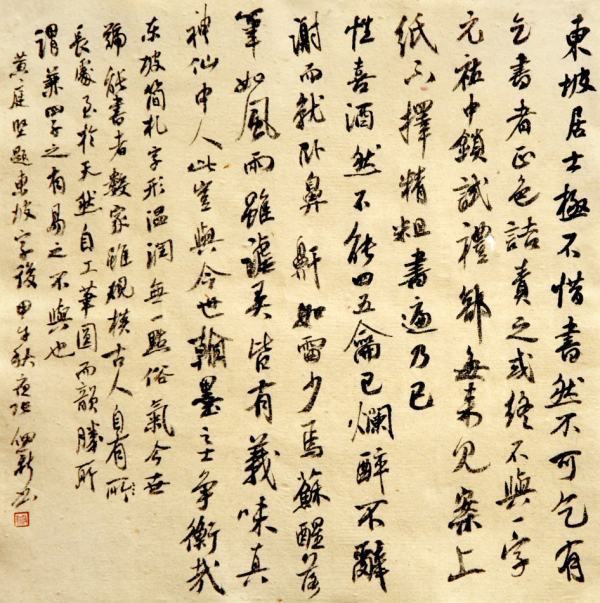 東坡居士極不惜書然不可乞有
乞書者正色詰責之或終不與一字
元祐中鎖試禮部每來見案上
紙不擇精粗書遍乃已
性喜酒然不能四五龠已爛醉不辭
謝而就卧鼻鼾如雷少焉蘇醒落
筆如風雨雖謔弄皆有義味真
神仙中人此豈與今世翰墨之士爭衡哉
東坡簡札字形溫潤無一點俗氣今世
號能書者數家雖規模古人自有所
長處至於天然自工筆圓而韻勝所
謂兼四子之有易之不與也
黃庭堅題東坡字後甲午秋夜